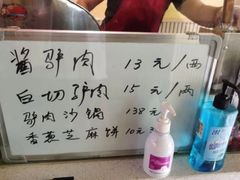 酱驴肉 13元/两
白切驴肉 15元/两
驴肉沙锅 138元
香葱芝麻饼 10元